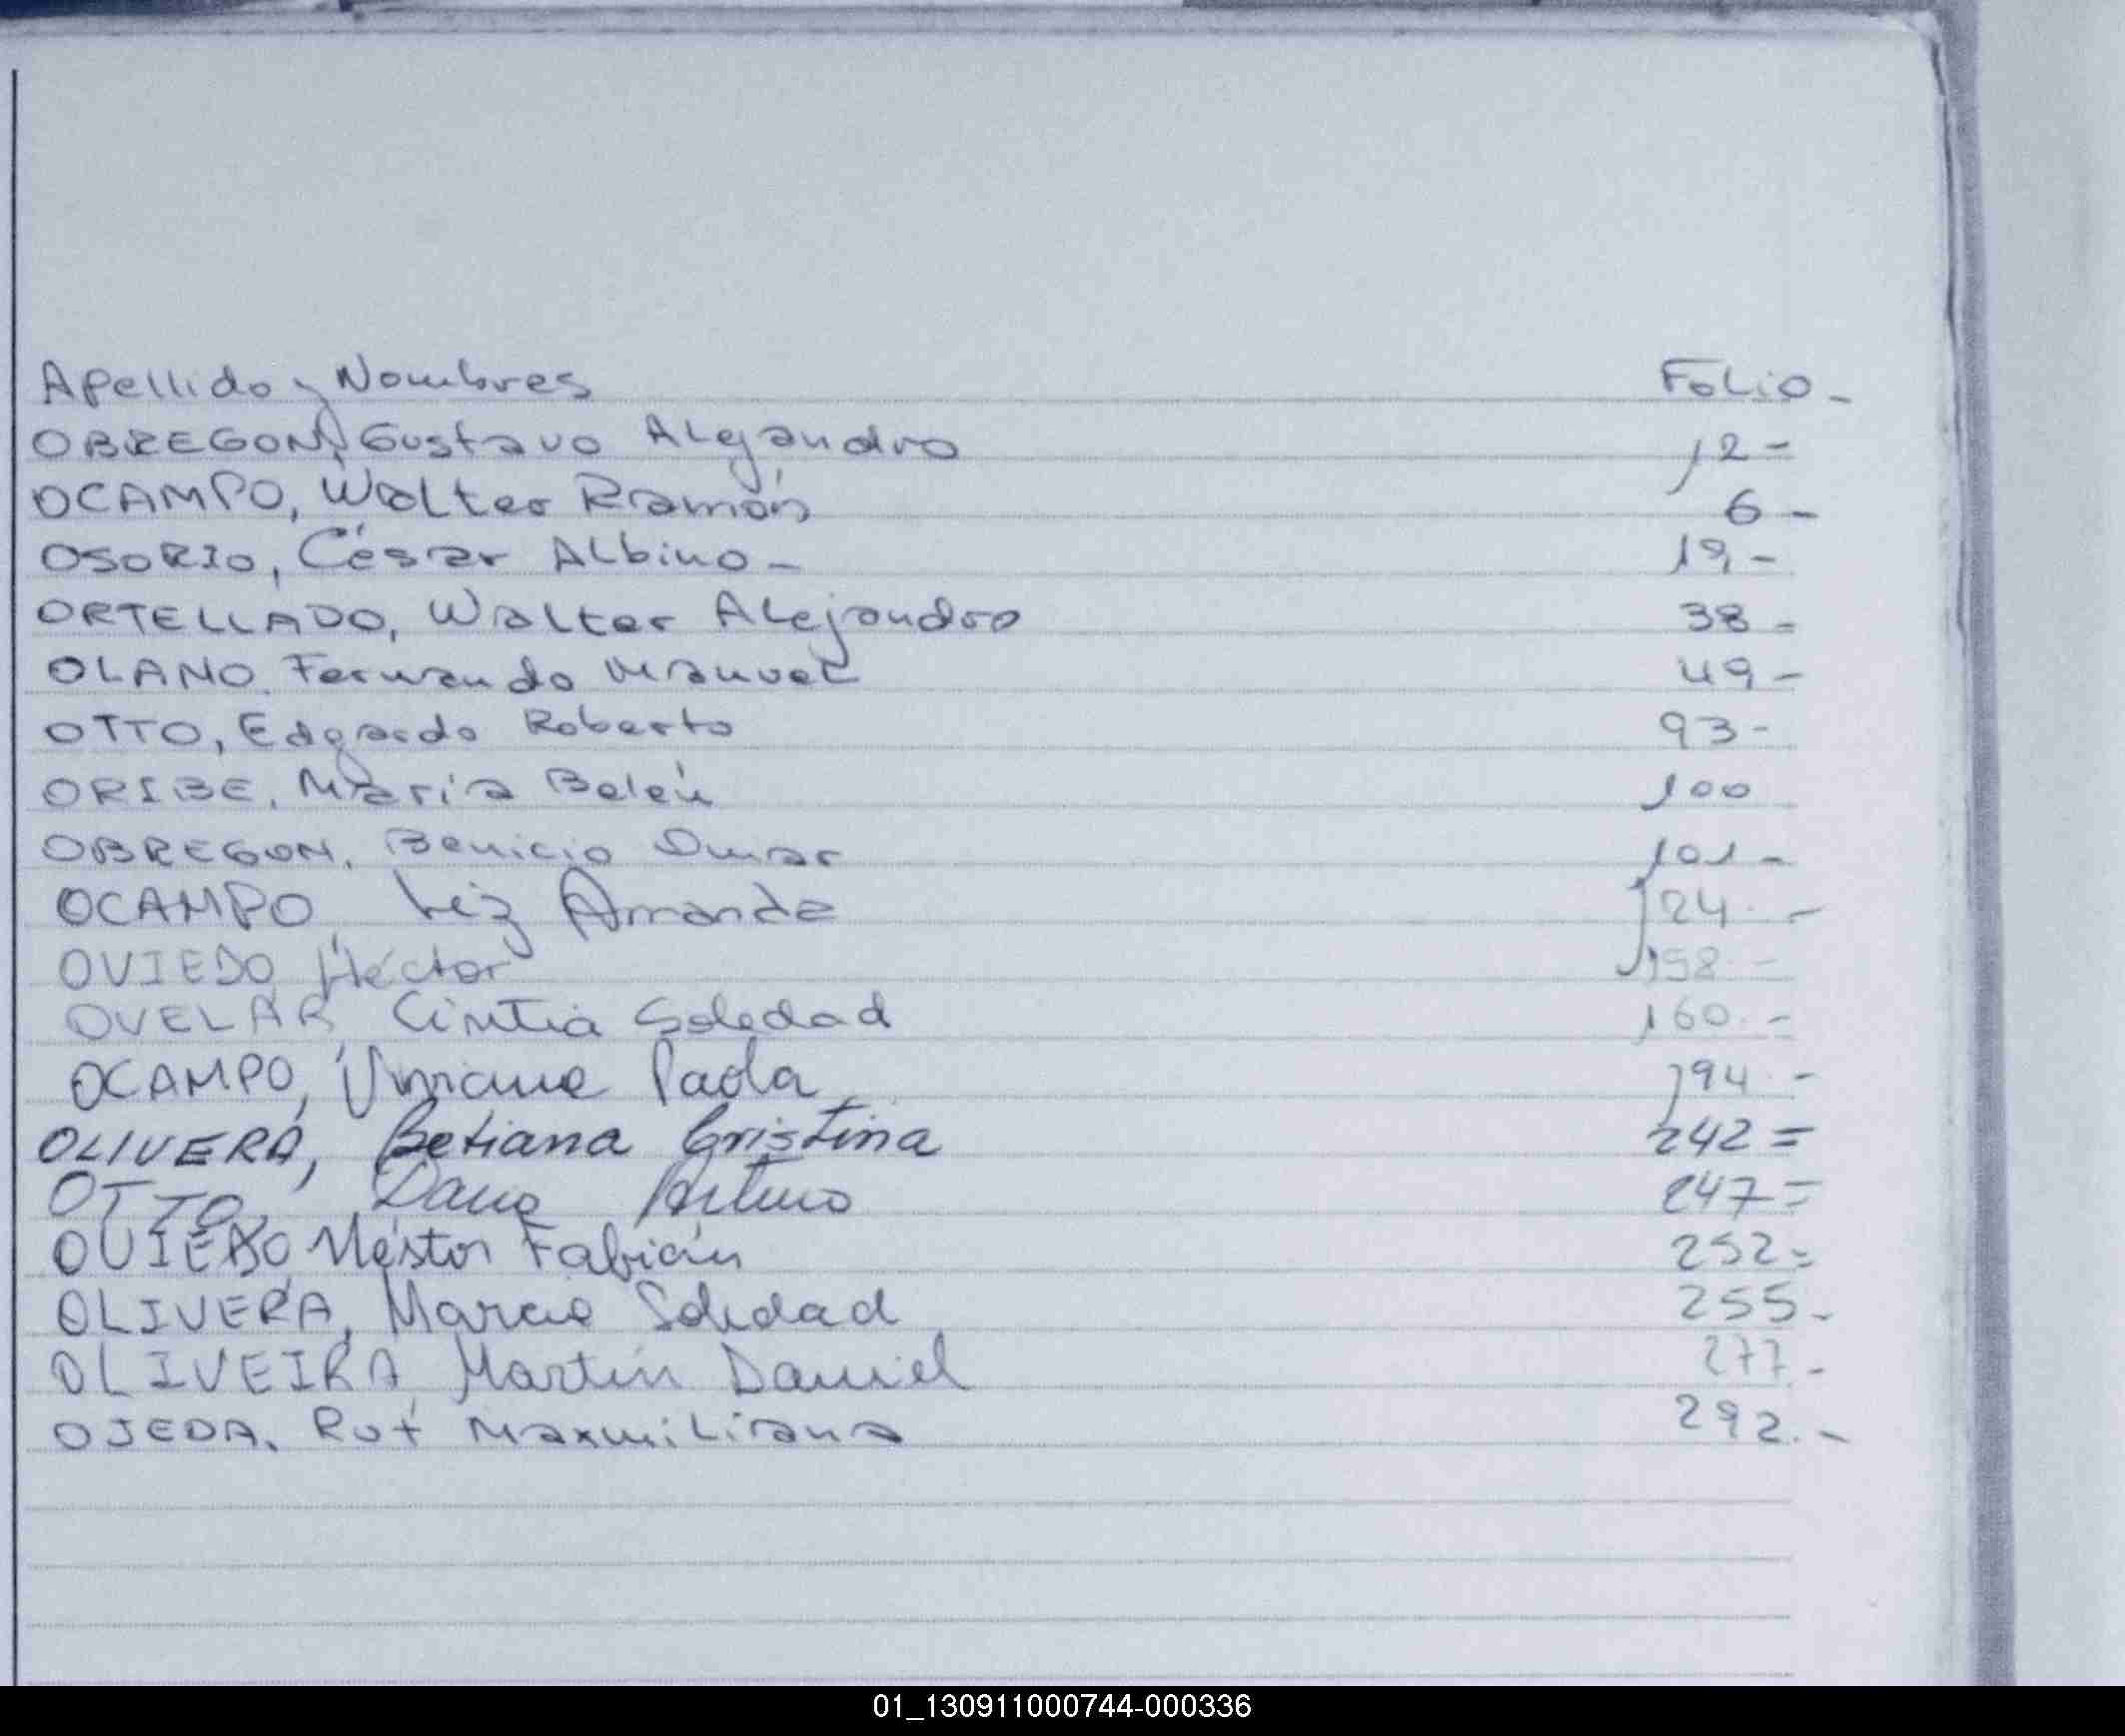 Apellido y Nombres Folio -
OBREGON, Gustavo Alejandro 12 -
OCAMPO, Walter Ramón 6 -
OSORIO, César Albino - 19 -
ORTELLADO, Walter Alejandro 38 -
OLANO. Fernando Manuel 49 -
OTTO, Edgardo Roberto 93 -
ORIBE, María Belén 100
OBREGON, Benicio Omar 101 -
OCAMPO Liz Amanda 124. -
OVIEDO Héctor 158. -
OVELAR Cintia Soledad 160. -
OCAMPO, Viviana Paola 194. -
OLIVERA, Betiana Cristina 242 =
OTTO, Arturo 247 =
OVIEDO Néstor Fabián 252 =
OLIVERA, Soledad 255 -
OLIVEIRA, Martín Daniel 277. -
OJEDA, Rut Maxmiliana 292. -
01_130911000744-000336